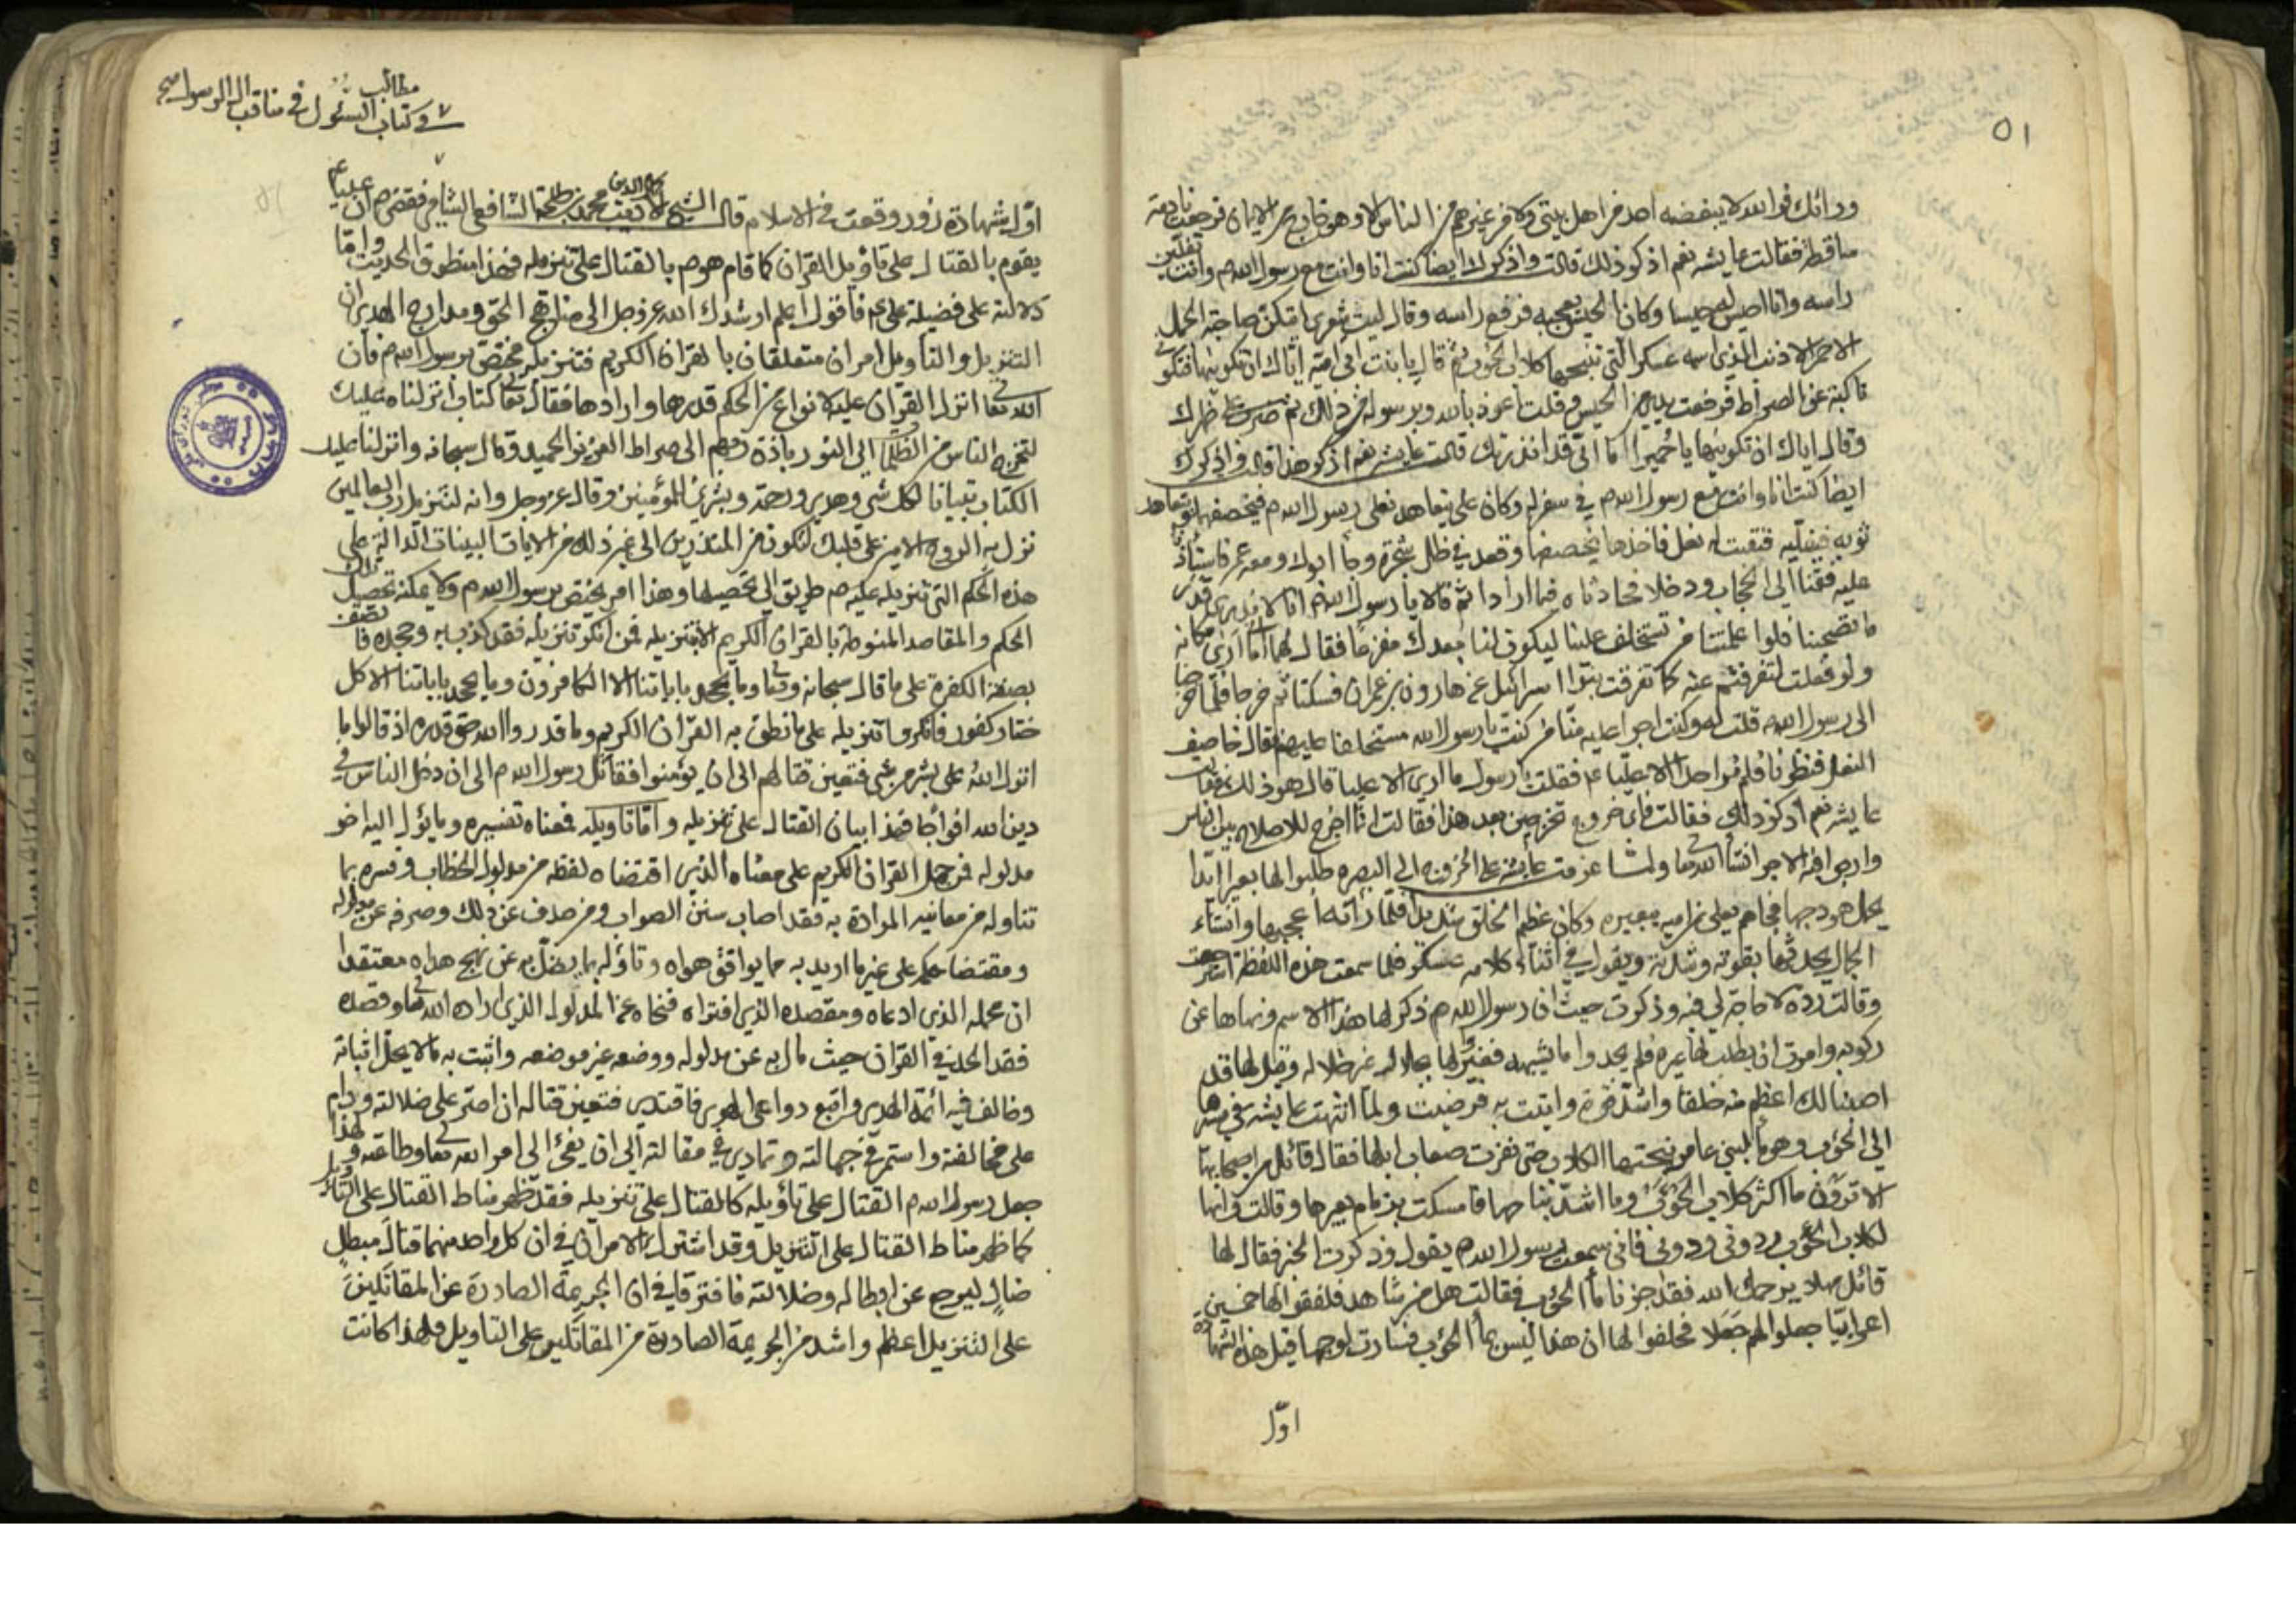 ٥١
ورائك فوالله لا يبغضه احد من اهل بيتي ولا من غيرهم من الناس الا وهو خارج من الايمان فرجعت نادمة
ساقطة فقالت عايشه نعم اذكر ذلك قالت واذكرك ايضا كنت انا وانت مع رسول الله ص وانت تفلين
راسه وانا احيس له حيسا وكان الحيس يعجبه فرفع راسه وقال ليت شعري ايتكن صاحبة الجمل
الاحمر الاذنب الذي اسمه عسكر التي تنبحها كلاب الحوئب ثم قال يا بنت ابي امية اياك ان تكونيها فتكوني
ناكبة عن الصراط فرفعت يدي من الحيس وقلت اعوذ بالله وبرسوله من ذلك ثم ضرب على ظهرك
وقال اياك ان تكونيها يا حميرا اما اني قد انذرتك قالت عايشه نعم اذكر هذا قالت واذكرك
ايضا كنت انا وانت مع رسول الله ص في سفر له وكان علي يتعاهد نعلي رسول الله ص فيخصفها ويتعاهد
ثوبه فيفليه فنقبت له نعل فاخذها يخصفها وقعد في ظل شجرة وجاء ابوك ومعه عمر فاستأذنا
عليه فقمنا الى الحجاب ودخلا فحادثاه فيما ارادا ثم قالا يا رسول الله انا لا ندري قدر
ما تصحبنا فلو اعلمتنا من تستخلف علينا ليكون لنا بعدك مفزعا فقال لهما اما اني ارى مكانه
ولو فعلت لتفرقتم عنه كما تفرقت بنو اسرائيل عن هارون بن عمران فسكتا ثم خرجا فلما خرجنا
الى رسول الله قلت له وكنت اجرا عليه منا من كنت يا رسول الله مستخلفا عليهم فقال خاصف
النعل فنظرنا فلم نر احدا الا عليا ع فقلت يا رسول ما ارى الا عليا قال هو ذلك فقالت
عايشه نعم اذكر ذلك فقالت فاي خروج تخرجين بعد هذا فقالت انما اخرج للاصلاح بين الناس
وارجو فيه الاجر انشأ الله تعالى ولما عزمت عايشه على الخروج الى البصرة طلبوا لها بعيرا ايدا
يحمل هودجها فجاهم يعلى بن اميه ببعيره وكان عظيم الخلق شديدا فلما راته اعجبها وانشاء
الجمال يحدثها بقوته وشدته ويقول في اثناء كلامه عسكر فلما سمعت هذه اللفظة استرجعت
وقالت ردوه لا حاجة لي فيه وذكرت حيث ان رسول الله ص ذكر لها هذا الاسم ونهاها عن
ركوبه وامرت ان يطلب لها غيره فلم يجدوا ما يشبهه فغير لها بجلال غير جلاله وقيل لها قد
اصبنا لك اعظم منه خلقا واشد قوة واتيت به فرضيت ولما انتهت عايشه في مسيرها
الى الحوئب وهو ماء لبني عامر نبحتها الكلاب حتى نفرت صعاب ابلها فقال قائل من اصحابها
الا ترون ما اكثر كلاب الحوئب وما اشد نباحها فامسكت بزمام بعيرها وقالت وانها
لكلاب الحوئب ردوني ردوني فاني سمعت رسول الله ص يقول وذكرت الخبر فقال لها
قائل مهلا يرحمك الله فقد جزنا ماء الحوئب فقالت هل من شاهد فلفقوا لها خمسين
اعرابيا جعلوا لهم جعلا فحلفوا لها ان هذا ليس بماء الحوئب فسارت لوجهها قيل هذه الشهادة
اول
مطالب
في كتاب السئول في مناقب ال الرسول
اول شهادة زور وقعت في الاسلام قال الشيخ كمال الدين محمد بن طلحة الشافعي الشامي فقضى ص ان عليا ع
يقوم بالقتال على تأويل القران كما قام هو ص بالقتال على تنزيله فهذا منطوق الحديث واما
دلالته على فضيلة علي ع فاقول اعلم ارشدك الله عز وجل الى مناهج الحق ومدارج الهدى ان
التنزيل والتاويل امران متعلقان بالقران الكريم فتنزيله مختص برسول الله ص فان
الله تعالى انزل القران عليه لانواع من الحكم قدرها وارادها فقال تعالى كتاب انزلناه عليك
لتخرج الناس من الظلمات الى النور باذن ربهم الى صراط العزيز الحميد وقال سبحانه وانزلنا عليك
الكتاب تبيانا لكل شي وهدى ورحمة وبشرى للمؤمنين وقال عز وجل وانه لتنزيل رب العالمين
نزل به الروح الامين على قلبك لتكون من المنذرين الى غير ذلك من الايات البينات الدالة على
هذه الحكم التي تنزيله عليه ص طريق الى تحصيلها وهذا امر يختص برسول الله ص ولا يمكنه تحصيل تلك
الحكم والمقاصد المنوطة بالقران الكريم الا بتنزيله فمن انكر تنزيله فقد كذب به وجحده فاتصف
بصفة الكفرة على ما قال سبحانه وتعالى وما يجحد باياتنا الا الكافرون وما يجحد باياتنا الا كل
ختار كفور فانكروا تنزيله على ما نطق به القران الكريم وما قدروا الله حق قدره اذ قالوا ما
انزل الله على بشر من شي فتعين قتالهم الى ان يؤمنوا فقاتل رسول الله ص الى ان دخل الناس في
دين الله افواجا فهذا بيان القتال على تنزيله واما تاويله فمعناه تفسيره وما يؤل اليه اخر
مدلوله فمن حمل القران الكريم على معناه الذي اقتضاه لفظه من مدلول الخطاب وفسره بما
تناوله من معانيه المرادة به فقد اصاب سنن الصواب ومن صدف عن ذلك وصرفه عن مدلوله
ومقتضاه وحمله على غير ما اريد به مما يوافق هواه وتاوله بما يضل به عن نهج هداه معتقدا
ان محمله الذي ادعاه ومقصده الذي افتراه فنحاه هو المدلول الذي اراده الله تعالى وقصده
فقد الحد في القران حيث مال به عن مدلوله ووضعه غير موضعه واثبت به مالا يحل اثباته
وخالف فيه ائمة الهدى واتبع دواعي الهوى فاقتدى فتعين قتاله ان اصر على ضلالته ودام
على مخالفته واستمر في جهالته وتمادى في مقالته الى ان يفئ الى امر الله تعالى وطاعته ولهذا
جعل رسول الله ص القتال على تأويله كالقتال على تنزيله فقد ظهر مناط القتال على التأويل
كما ظهر مناط القتال على التنزيل وقد اشترك الامران في ان كل واحد منهما قتال مبطل
ضال ليرجع عن ابطاله وضلالته فافترقا في ان الجريمة الصادرة عن المقاتلين
على التنزيل اعظم واشد من الجريمة الصادرة من المقاتلين على التاويل فلهذا كانت